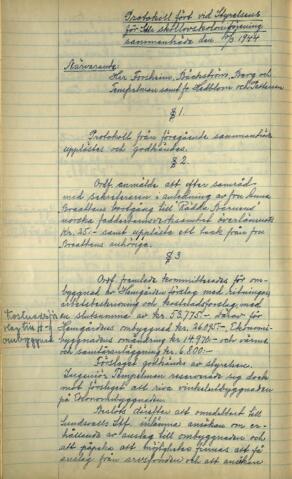 Protokoll fört vid Styrelsens
för skollovskoloniförening
sammanträde den 10/3 1944
Närvarande:
Herr Forsheim, Bäckström, Berg och
Tempelman samt fr Hedblom och
§ 1.
Protokoll från föregående sammanträde
upplästes och godkändes.
§ 2.
Ordf. anmälde att efter samråd
med sekreteraren i anledning av fru Anna
Braattens bortgång till "Rädda Barnens"
norska fadderbarnsverksamhet överlämnats
Kr. 25.- samt upplästes ett tack från fru
Braattens anhöriga.
§ 3
Ordf. framlade kommitterades för om-
byggnad av Hemgården förslag med ritningar,
arbetsbeskrivning och kostnadsförslag med
en slutsumma av kr. 53,775.- därav för
Hemgårdens ombyggnad kr. 26,045.- Ekonomi-
byggnadens omändring kr. 14,970.- och värme
och sanitäranläggning kr. 6,800.-
Förslaget godkändes av styrelsen.
Ingeniör Tempelman reserverade sig dock
mot förslaget att riva vinkelutbyggnaden
på Ekonomibyggnaden.
Beslöts därefter att omedelbart till
Sundsvalls Stf. inlämna ansökan om er-
hållande av anslag till ombyggnaden och
att påpeka att möjligheter finnas att få
anslag från arvsfonden och att ansökan
Kostnadsförs-
lag till H-g
ombyggnad